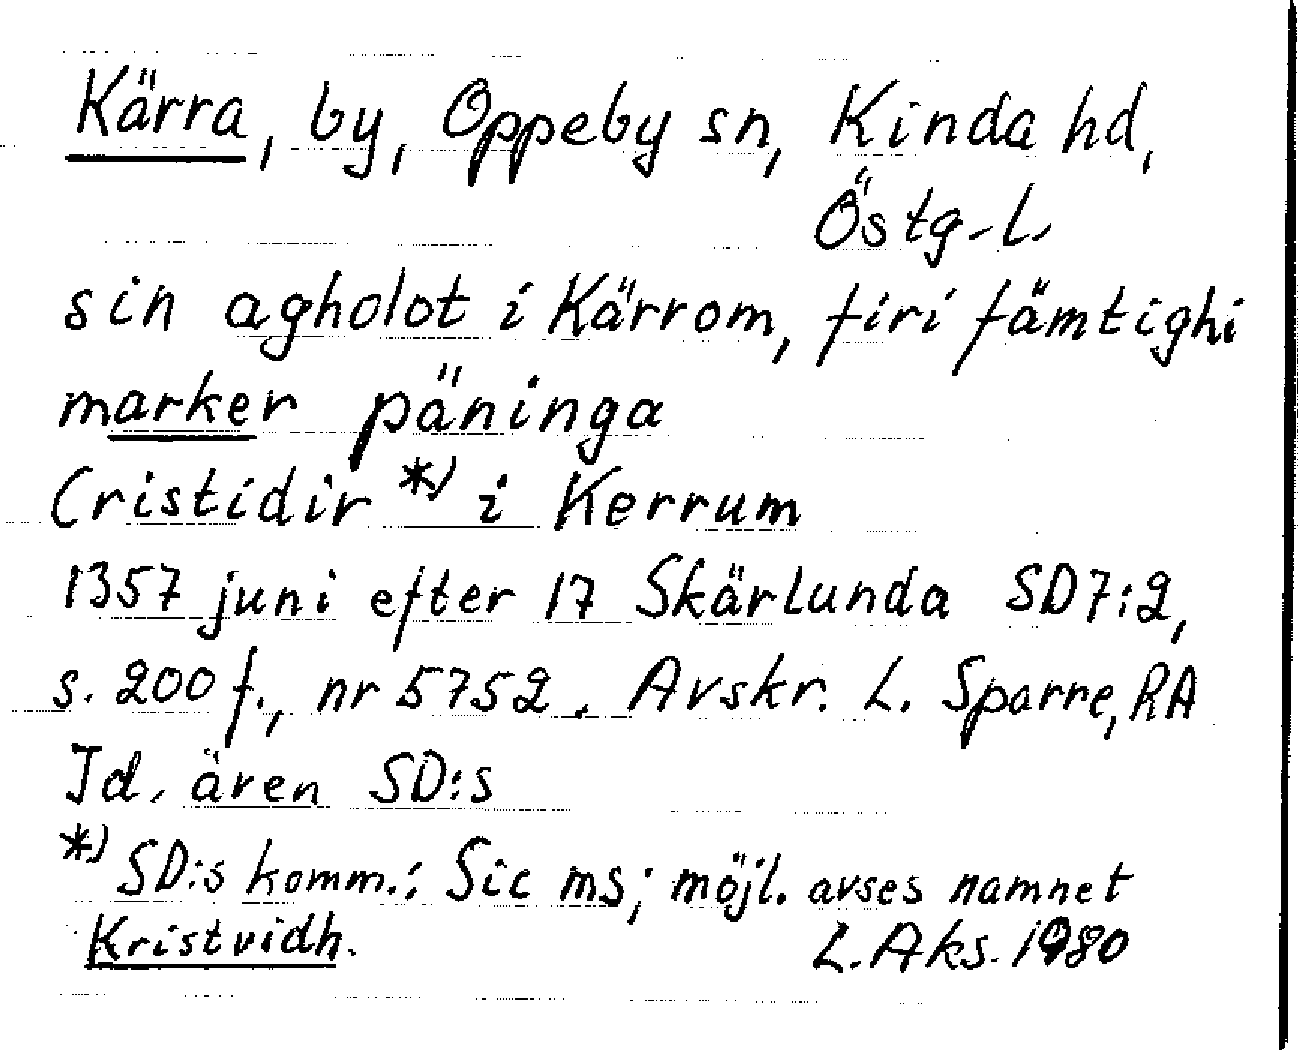 Kärra, by, Oppeby sn, Kinda hd,
Östg-L.
sin agholot i Kärrom, firi fämtighi
marker päninga
Cristidir *) i Kerrum
1357 juni efter 17 Skärlunda SD7:2,
s. 200 f., nr 5752. Avskr. L. Sparre, RA
Id. ären SD:s
*) SD:s komm.: Sic ms; möjl. avses namnet
Kristvidh.
L. Aks. 1980